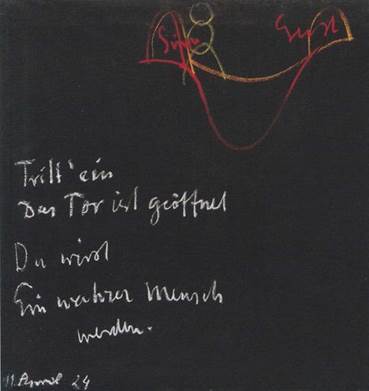 Sinne Geist
Tritt' ein
Das Tor ist geöffnet
Du wirst
Ein wahrer Mensch
werden.
24